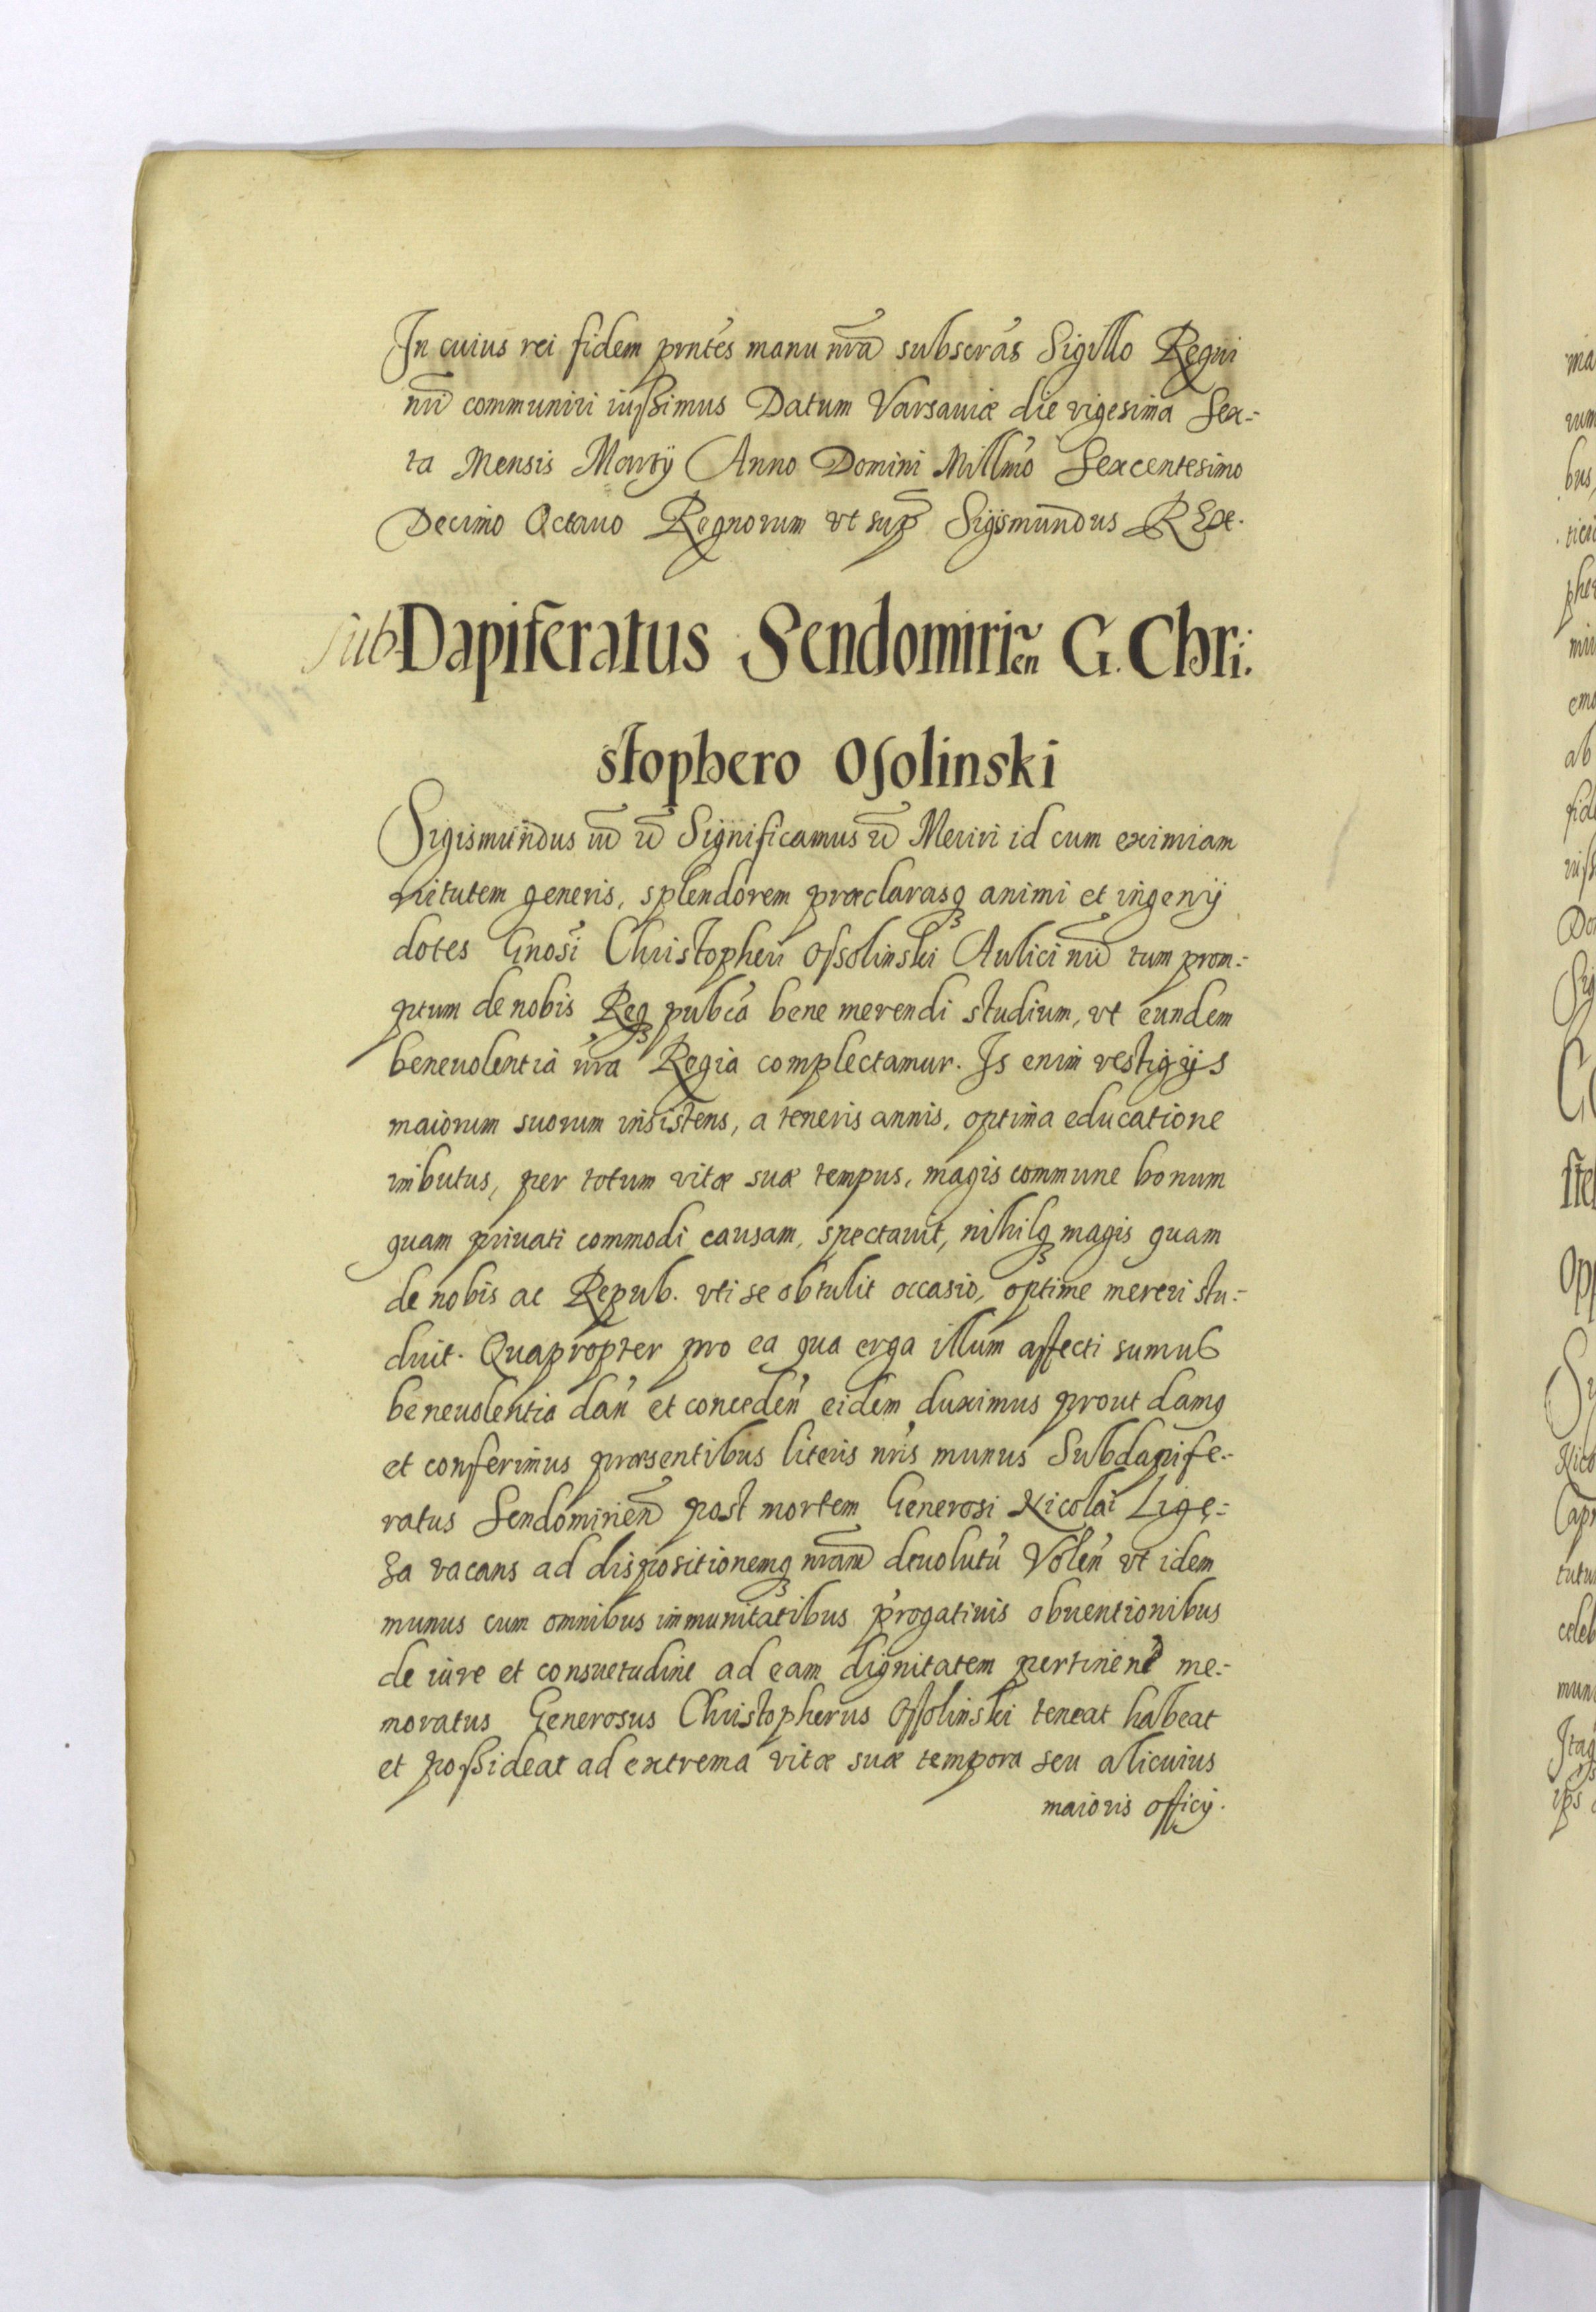 In cuius rei fidem pntes manu nra subscras Sigillo Regni
nri communiri iussimus Datum Varsauiæ die vigesima Sex-
ta Mensis Martij Anno Domini Millmo Sexcentesimo
Decimo Octauo Regnorum vt sup Sigismundus REX.
Sub Dapiferatus Sendomirien G. Chri:
stophero Osolinski
Sigismundus Significamus Meriri id cum eximiam
virtutem generis, splendorem præclarasq animi et ingenij
dotes Gnosi Christopheri Ossolinski Aulici nri tum prom-
ptum de nobis Reqз pubca bene merendi studium, vt eundem
beneuolentia nra Regia complectamur. Is enim vestigijs
maiorum suorum insistens, a teneris annis, optima educatione
imbutus, per totum vitæ suæ tempus, magis commune bonum
quam priuati commodi causam, spectauit, nihilqз magis quam
de nobis ac Repub. vti se obtulit occasio, optime mereri stu-
duit. Quapropter pro ea qua erga illum affecti sumus
beneuolentia dan et conceden eidem duximus prout damq
et conferimus præsentibus literis nris munus Subdapife-
ratus Sendomirien post mortem Generosi Nicolai Ligę-
za vacans ad dispositionemqз nram deuolutu Volen vt idem
munus cum omnibus immunitatibus p'rogatiuis obuentionibus
de iure et consuetudine ad eam dignitatem pertinen me-
moratus Generosus Christopherus Ossolinski teneat habeat
et possideat ad extrema vitæ suæ tempora seu alicuius
maioris officij.